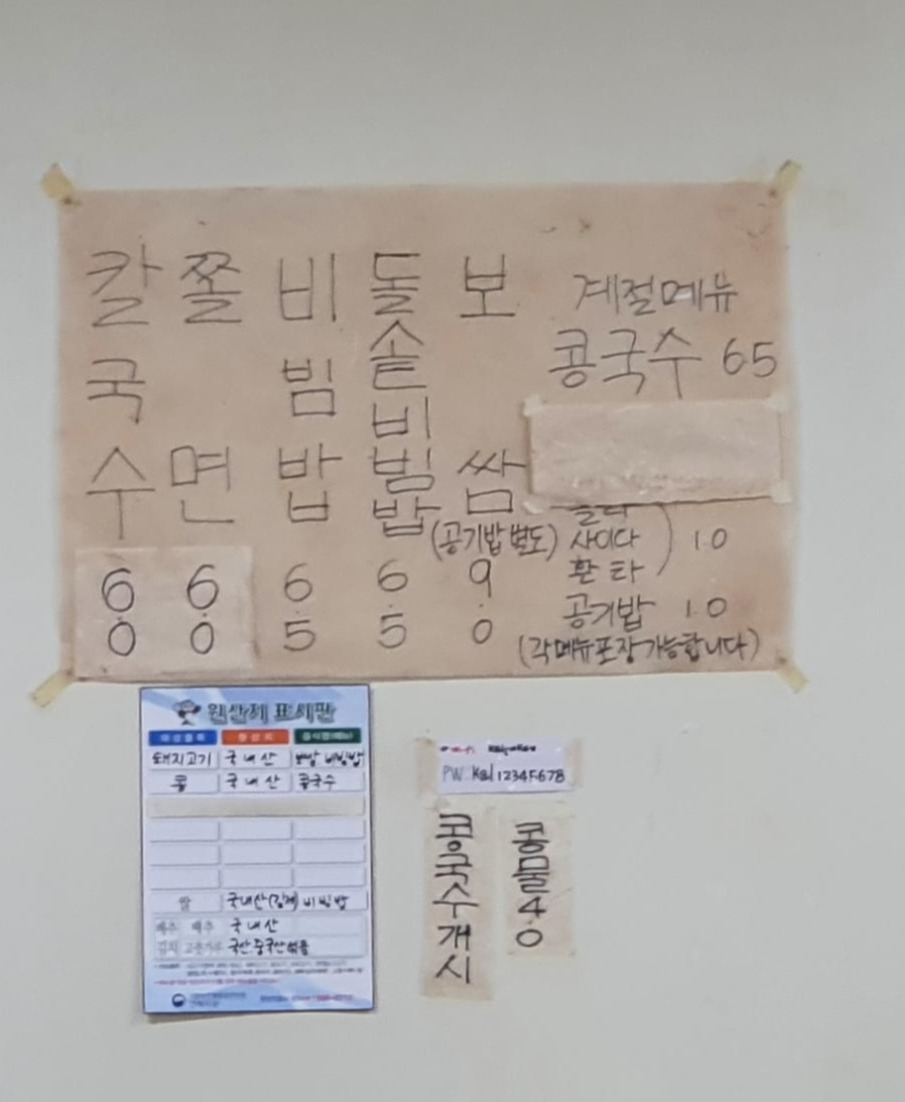 칼국수 6.0
쫄면 6.0
비빔밥 6.5
돌솥비빔밥 6.5
보쌈 9.0
(공기밥별도)
계절메뉴
콩국수 65
사이다 1.0
환타
공기밥 1.0
(각메뉴포장가능합니다)
원산지 표시판
돼지고기 국내산 보쌈 비빔밥
콩 국내산 콩국수
쌀 국내산(김제) 비빔밥
배추 배추 국내산
김치 고춧가루 국산중국산섞음
PW kal12345678
콩국수개시
콩물4.0